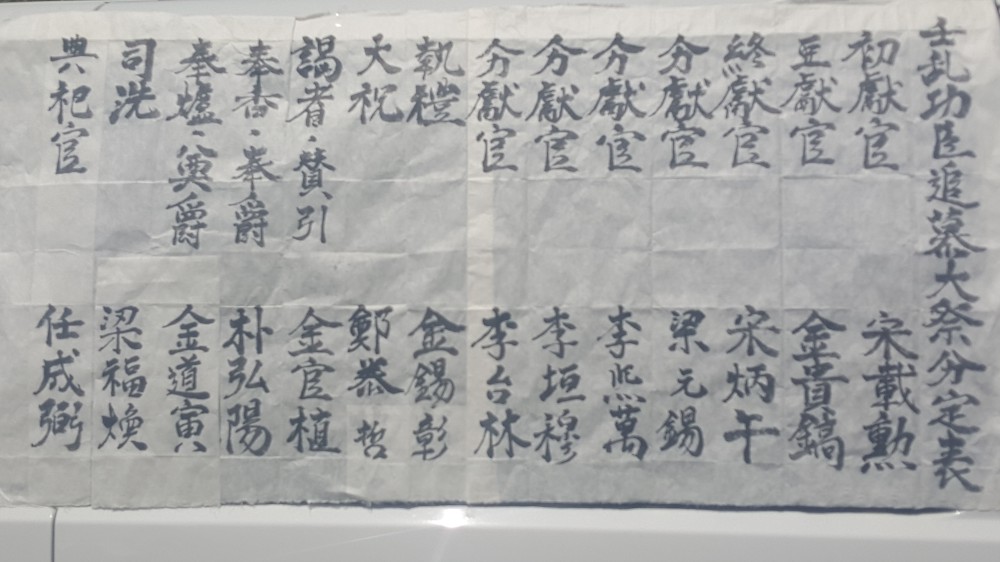 壬乱功臣追慕大祭分定表
初獻官 宋載勳
亞獻官 金貴鎬
終獻官 宋炳午
分獻官 梁元錫
分獻官 李熙萬
分獻官 李垣穆
分獻官 李台林
執禮 金錫彰
大祝 鄭恭哲
謁者·賛引 金官植
奉香·奉爵 朴弘陽
奉爐·奠爵 金道寅
司洗 梁福煥
典祀官 任成弼